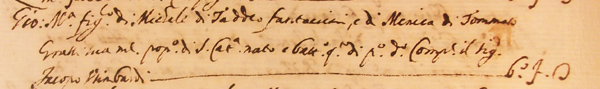 Gio: Mª figº di Michele di Taddeo Fantaccini, e di Menica di Tommaso
sua mᵉ. popº di S. Catª nato e battº qº di pº dº Compʳ il Sigʳ
Jacopo Nimbardi — 6º J. D